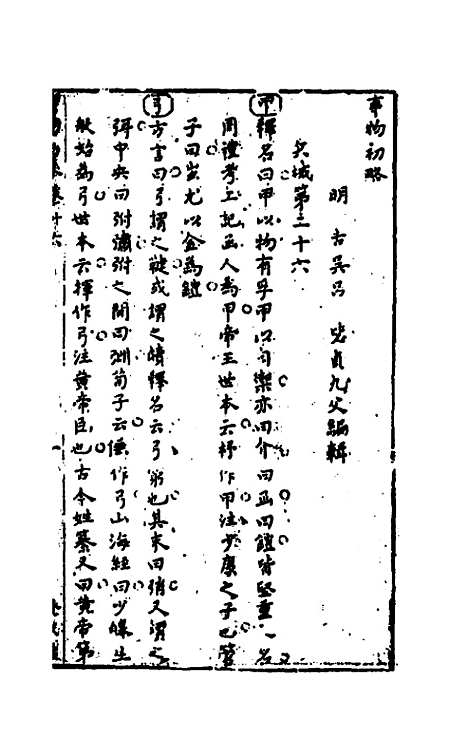 事物初略
明 古吳呂 毖貞九父編輯
兵械第二十六
甲 釋名曰甲似物有孚甲以自禦亦曰介曰函曰鎧皆堅重之名又
周禮考工記函人為甲帝王世本云杼作甲注少康之子也管
子曰蚩尤以金為鎧
弓 方言曰弓謂之鞬或謂之皾釋名云弓穹也其末曰弰又謂之
弭中央曰弣簫弣之間曰淵荀子云倕作弓山海經曰少皞生
般始為弓世本云揮作弓注黃帝臣也古今姓纂又曰黃帝第